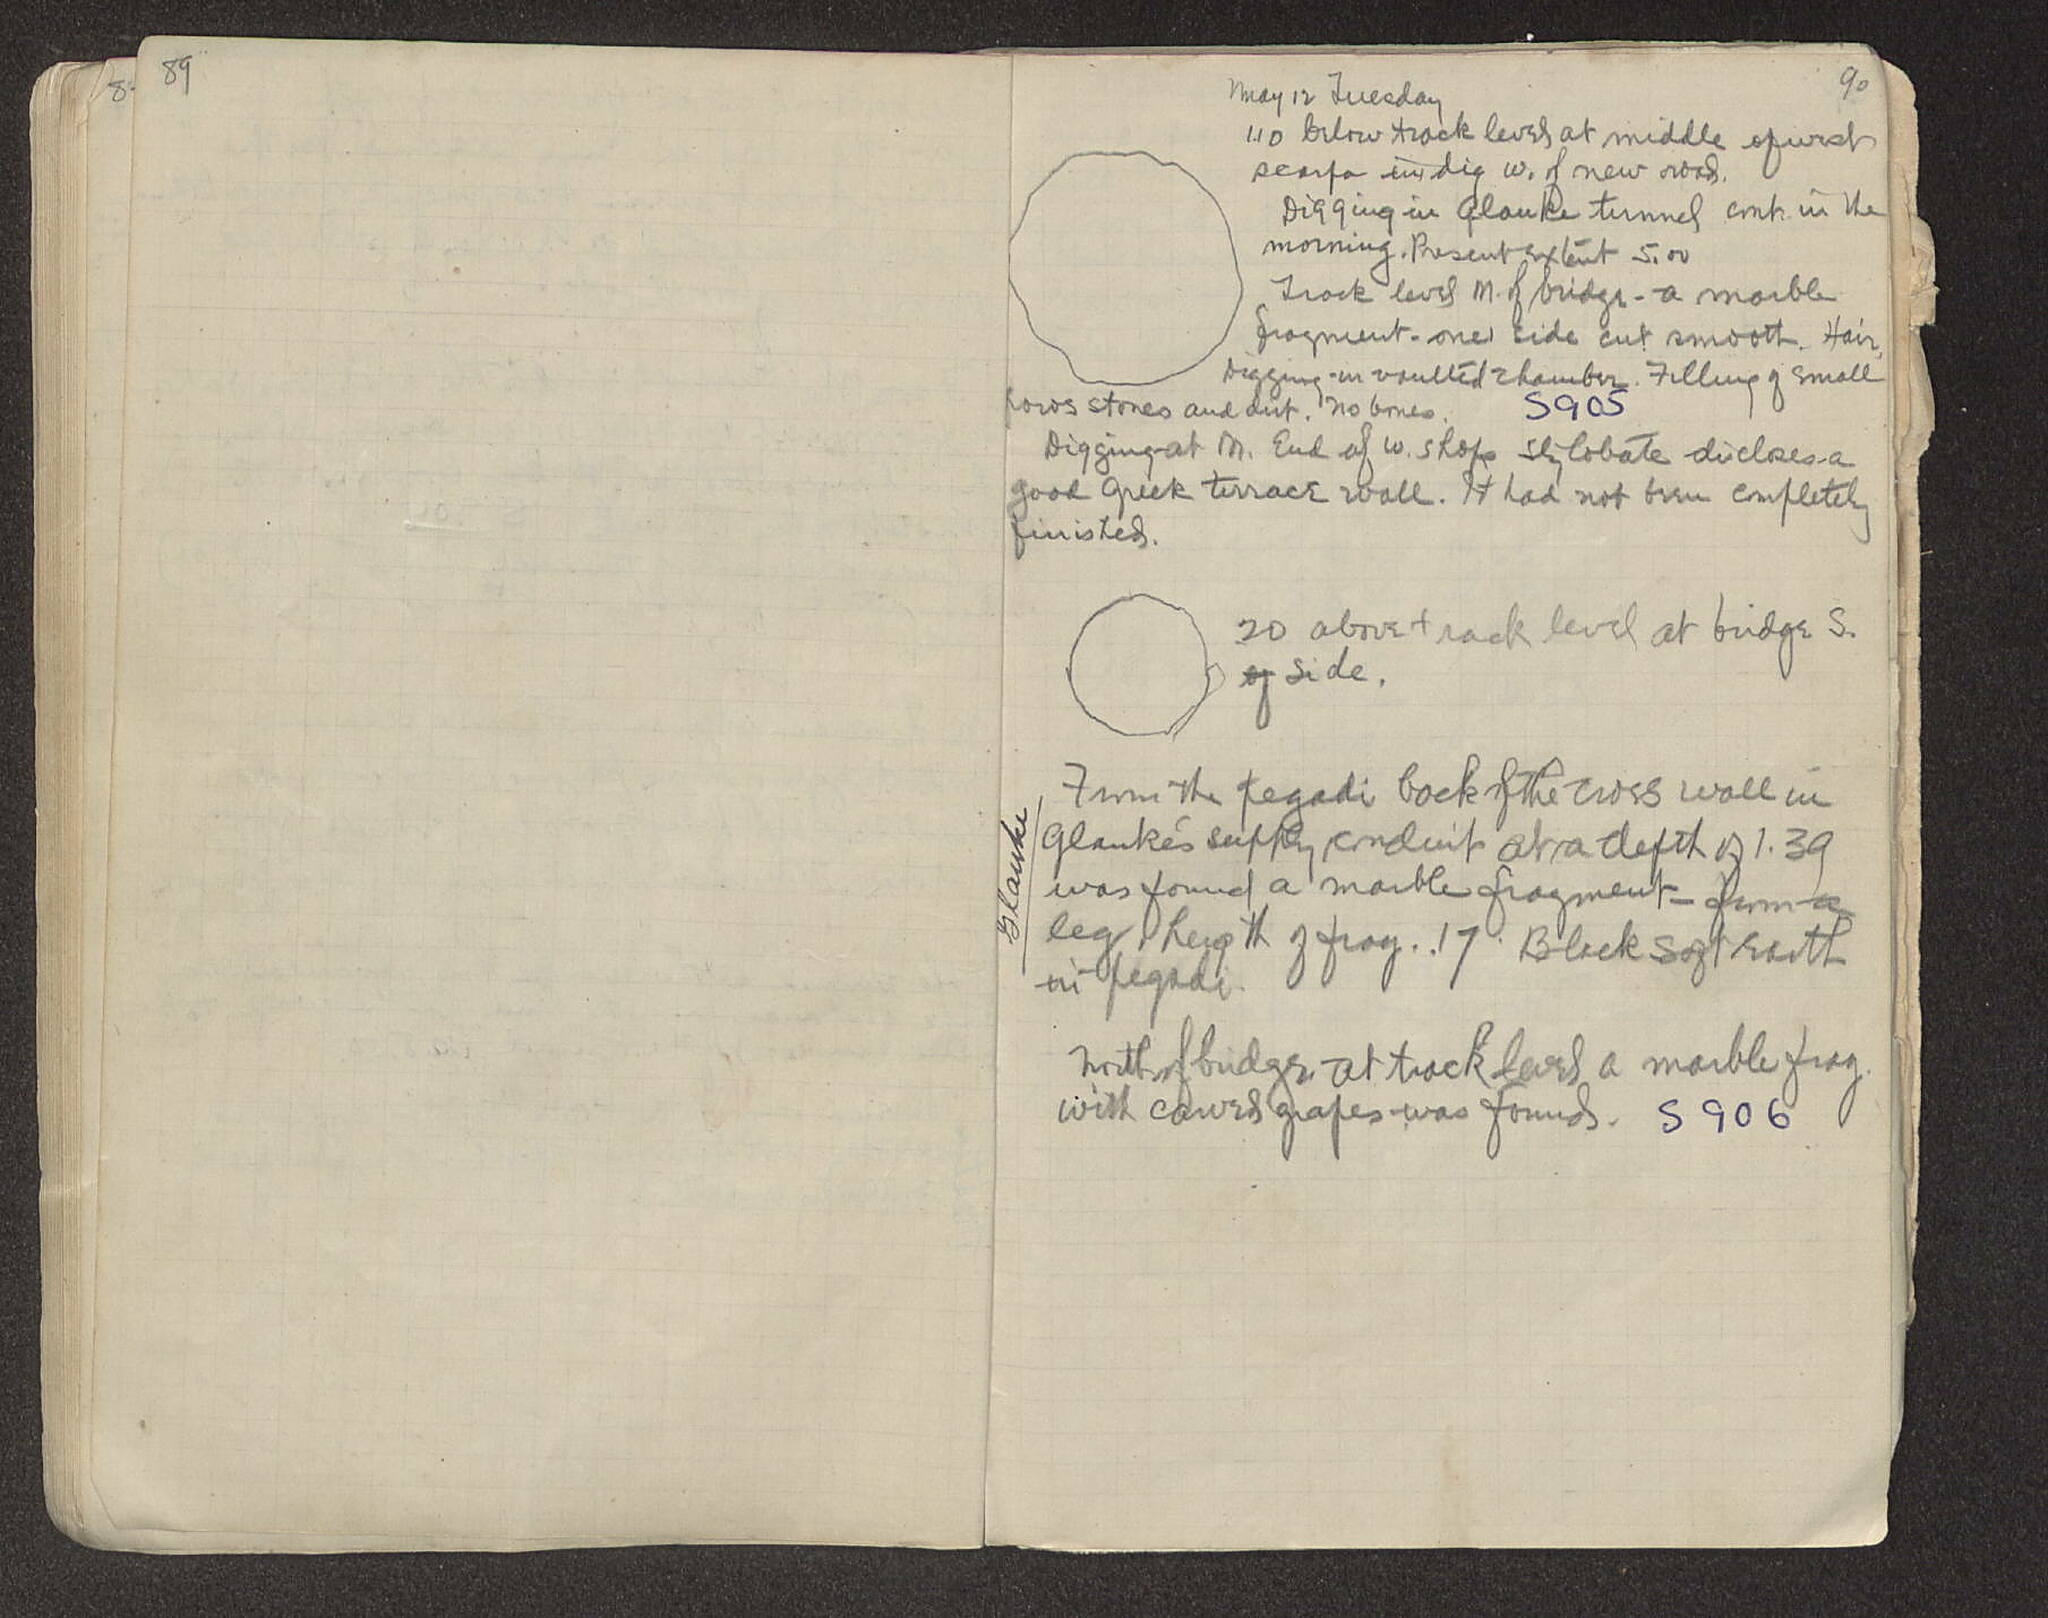 89
8
90
May 12 Tuesday
1.10 below track level at middle of west
scarp in dig w. of new road.
Digging in Glauke tunnel cont. in the
morning. Present extent 5.00
Track level N. of bridge - a marble
fragment - one side cut smooth. Hair,
Digging in vaulted chamber. Filling of small
stones and dirt. No bones. S905
Digging at N. End of w. shops stylobate discloses a
good Greek terrace wall. It had not been completely
finished.
20 above track level at bridge S.
of side.
Glauke
From the pegadi back of the cross wall in
Glauke's supply conduit at a depth of 1.39
was found a marble fragment - from a
leg, height of frag. .17. Black soft earth
in pegadi.
North of bridge at track level a marble frag.
with carved grapes was found. S 906